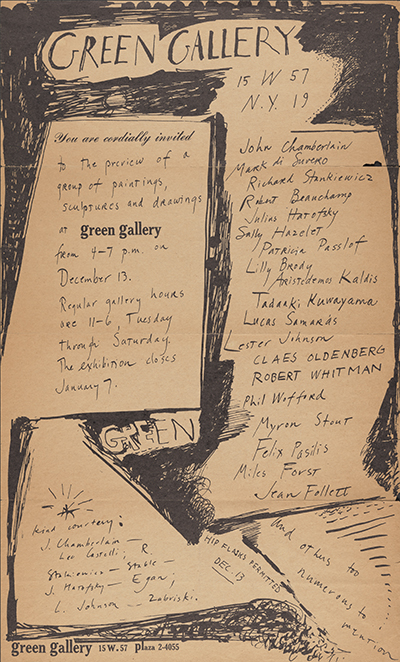 GREEN GALLERY
15 W 57
N.Y. 19
You are cordially invited
to the preview of a
group of paintings,
sculptures and drawings
at green gallery
from 4-7 p.m. on
December 13.
Regular gallery hours
are 11-6, Tuesday
through Saturday.
The exhibition closes
January 7.
John Chamberlain
Mark di Suvero
Richard Stankiewicz
Robert Beauchamp
Julius Hatofsky
Sally Hazelet
Patricia Passlof
Lilly Brody
Aristodemos Kaldis
Tadaaki Kuwayama
Lucas Samaras
Lester Johnson
CLAES OLDENBERG
ROBERT WHITMAN
Phil Wofford
Myron Stout
Felix Pasilis
Miles Forst
Jean Follett
GREEN
Kind courtesy:
J. Chamberlain —
Leo Castelli; R.
Stankiewicz — Stable —
J. Hatofsky — Egan;
L. Johnson — Zabriski.
HIP FLASKS PERMITTED
DEC. 13
And others too
numerous to
mention
green gallery 15 W. 57 plaza 2-4055